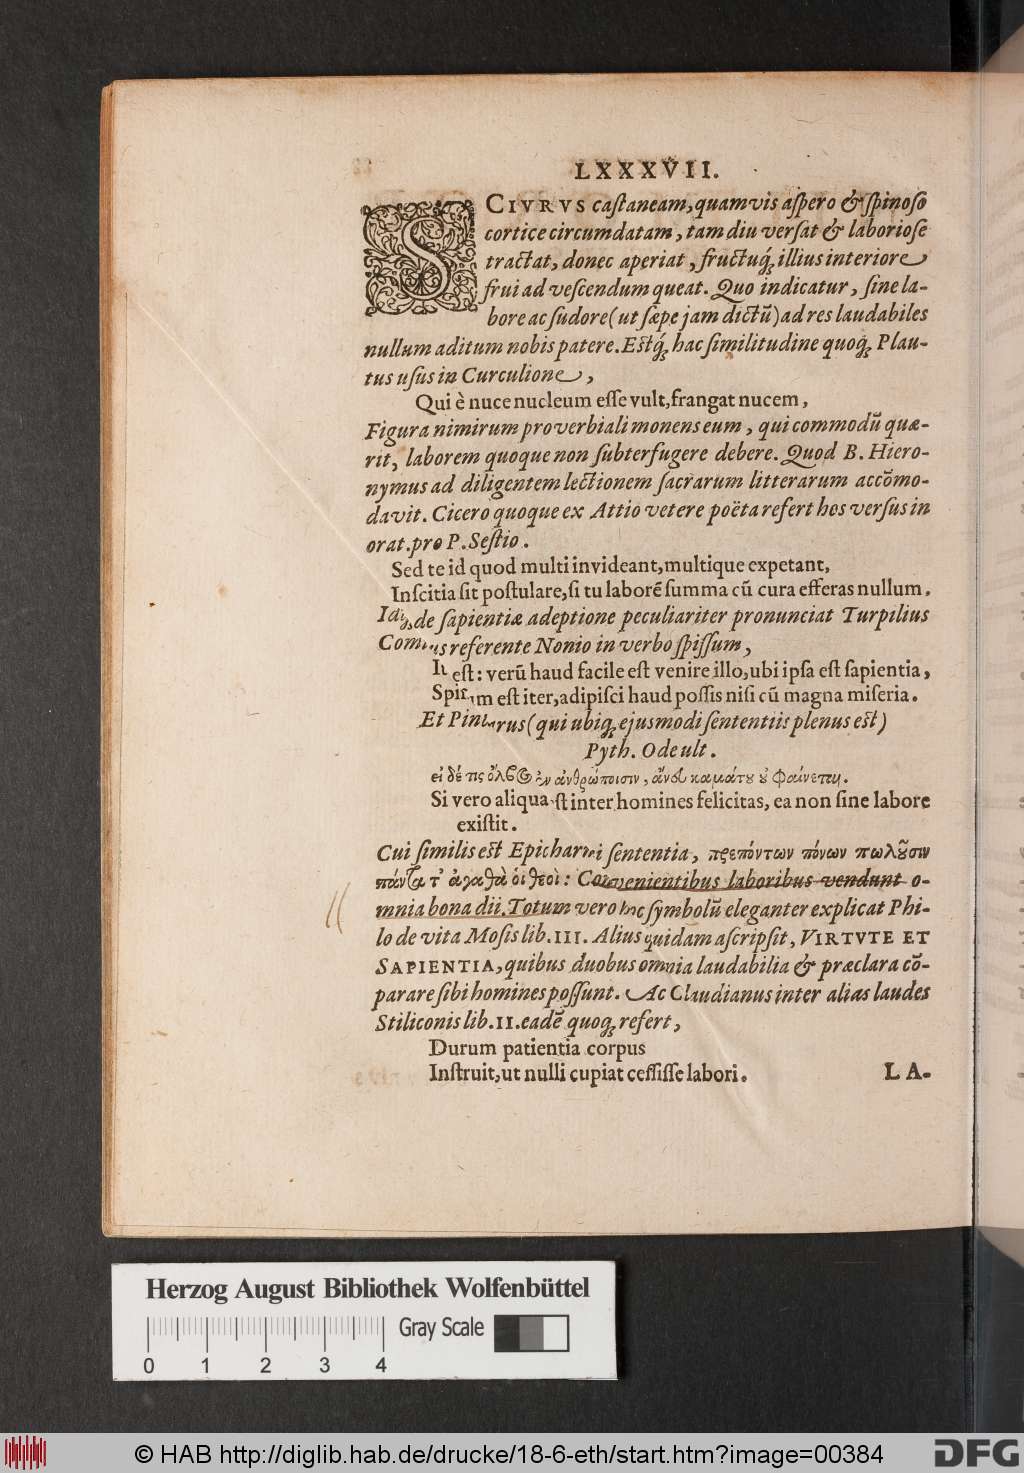 LXXXVII.
SCIVRVS castaneam, quamvis aspero & spinoso
cortice circumdatam, tam diu versat & laboriose
tractat, donec aperiat, fructuq́; illius interiore
frui ad vescendum queat. Quo indicatur, sine la-
bore ac sudore (ut sæpe jam dictũ) ad res laudabiles
nullum aditum nobis patere. Estq́; hac similitudine quoq; Plau-
tus usus in Curculione,
Qui è nuce nucleum esse vult, frangat nucem,
Figura nimirum proverbiali monens eum, qui commodũ quæ-
rit, laborem quoque non subterfugere debere. Quod B. Hiero-
nymus ad diligentem lectionem sacrarum litterarum accõmo-
davit. Cicero quoque ex Attio vetere poëta refert hos versus in
orat. pro P. Sestio.
Sed te id quod multi invideant, multique expetant,
Inscitia sit postulare, si tu laborẽ summa cũ cura efferas nullum.
de sapientiæ adeptione peculiariter pronunciat Turpilius
referente Nonio in verbo spissum,
est: verũ haud facile est venire illo, ubi ipsa est sapientia,
est iter, adipisci haud possis nisi cũ magna miseria.
Et (qui ubiq; ejusmodi sententiis plenus est)
Pyth. Ode ult.
εἰ δέ τις ὄλβος ἐν ἀνθρώποισιν, ἄνευ καμάτου οὐ φαίνεται.
Si vero aliqua inter homines felicitas, ea non sine labore
existit.
Cui similis est Epicharmi sententia, πρεπόντων πόνων πωλοῦσιν
πάντα τ' ἀγαθὰ οἱ θεοὶ: Convenientibus laboribus vendunt o-
mnia bona dii. Totum vero hoc symbolũ eleganter explicat Phi-
lo de vita Mosis lib. III. Alius quidam ascripsit, VIRTVTE ET
SAPIENTIA, quibus duobus omnia laudabilia & præclara cõ-
parare sibi homines possunt. Ac Claudianus inter alias laudes
Stiliconis lib. II. eadẽ quoq; refert,
Durum patientia corpus
Instruit, ut nulli cupiat cessisse labori.
LA-
Herzog August Bibliothek Wolfenbüttel
Gray Scale
0 1 2 3 4
© HAB http://diglib.hab.de/drucke/18-6-eth/start.htm?image=00384
DFG